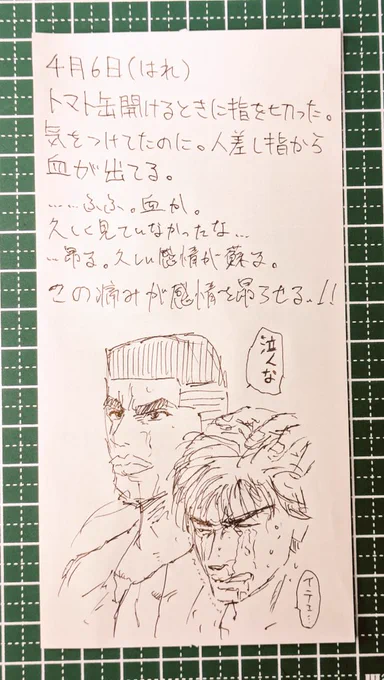 4月6日(はれ)
トマト缶開けるときに指を切った。
気をつけてたのに。人差し指から
血が出てる。
……ふふ。血か。
久しく見ていなかったな…
…昂る。久しい感情が蘇る。
この痛みが感情を昂らせる…!!
泣くな
イテェ…